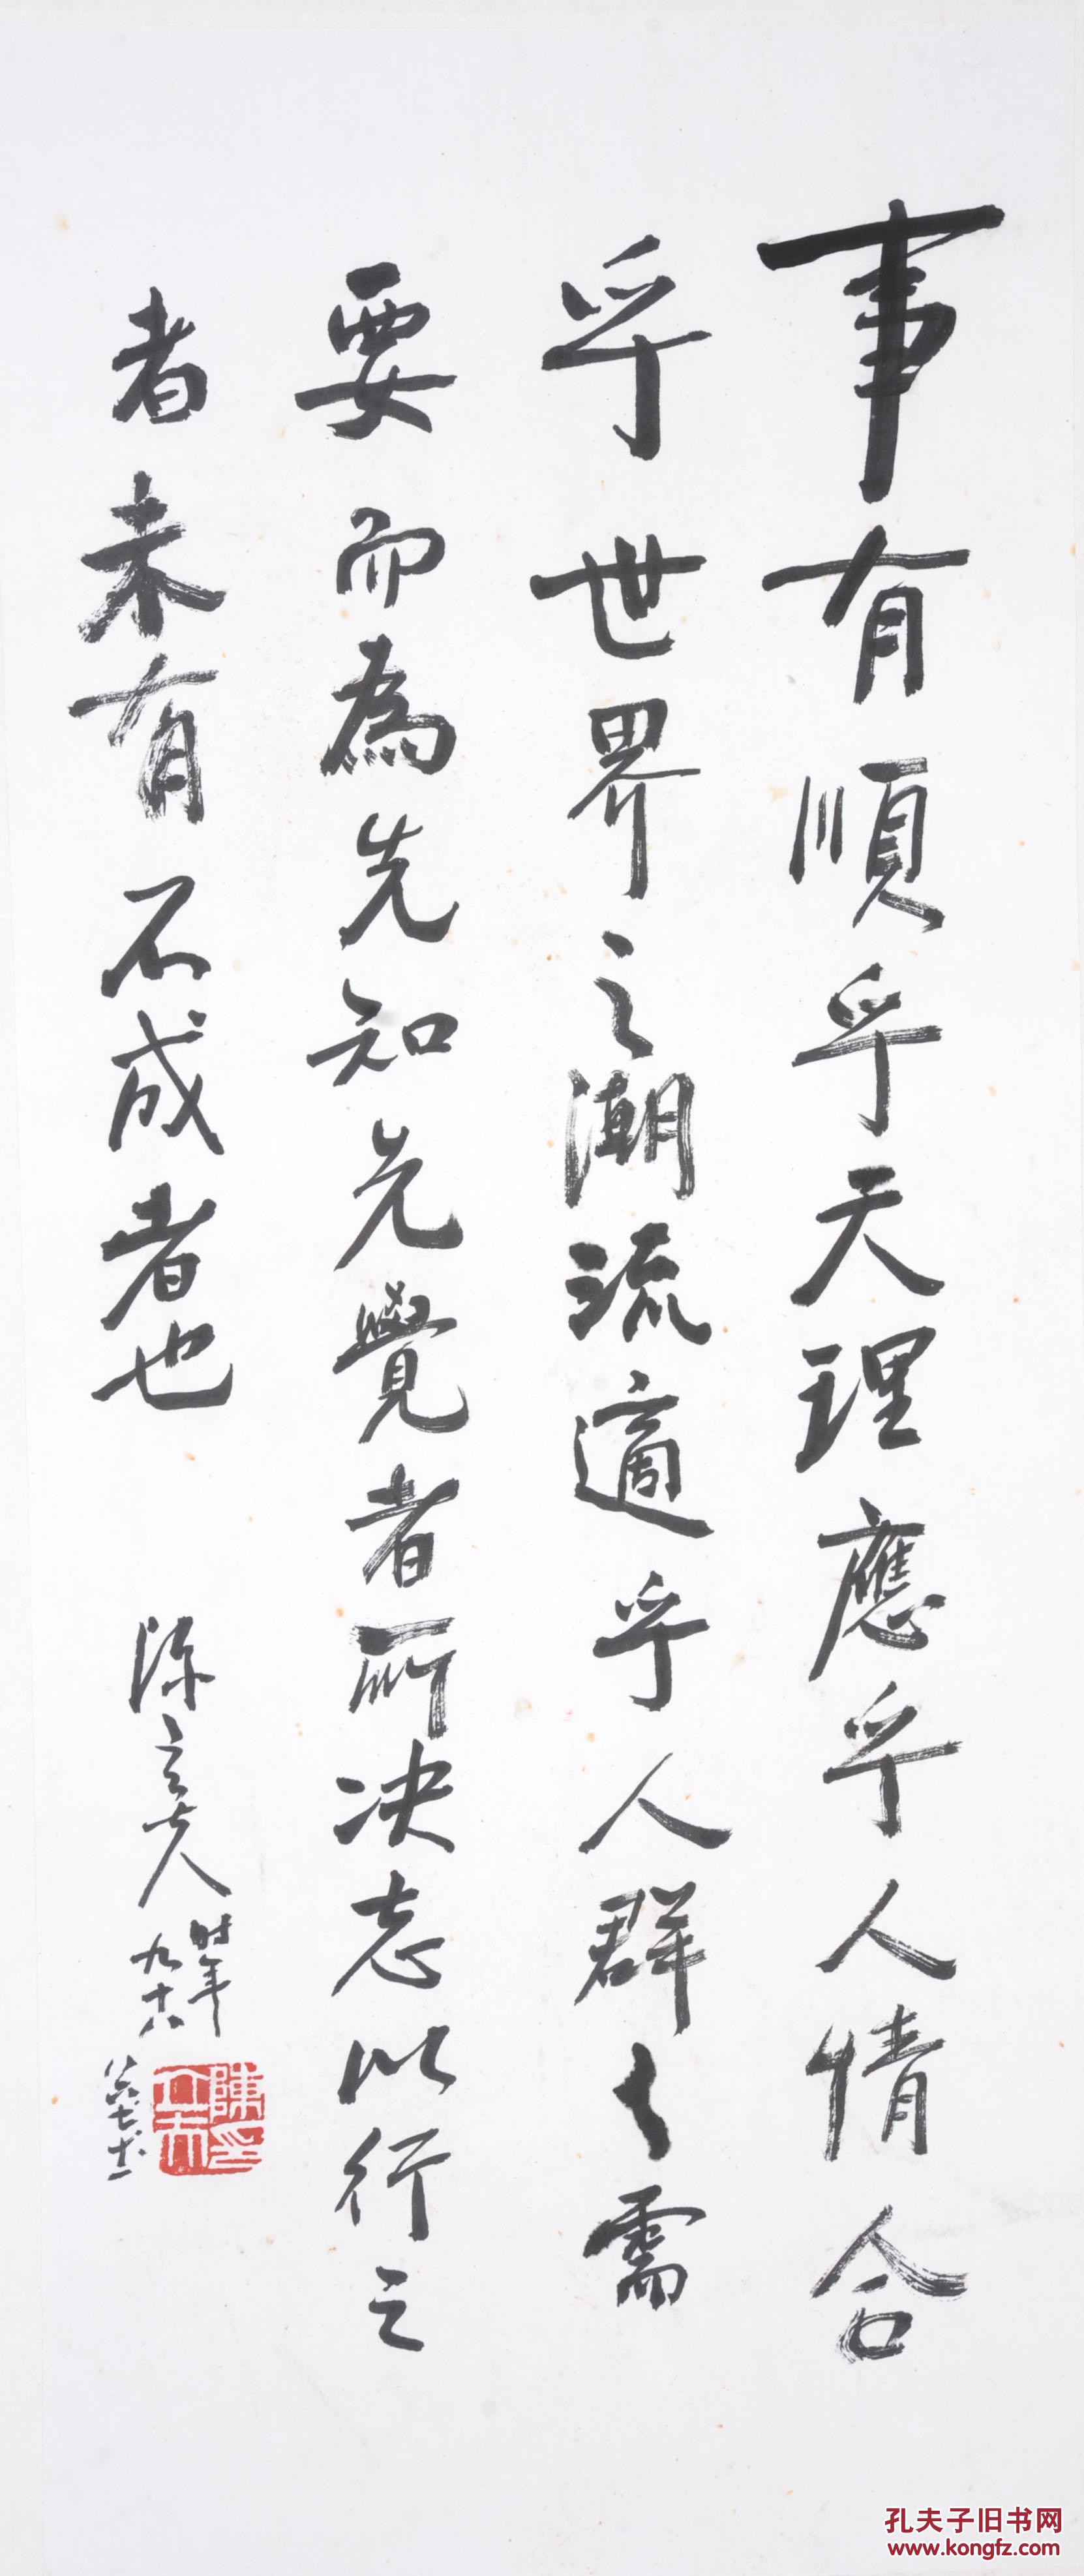 事有順乎天理應乎人情合
乎世界之潮流適乎人群之需
要而為先知先覺者所決志以行之
者未有不成者也
陳立夫
時年
九十八
陳立夫印
孔夫子旧书网
www.kongfz.com